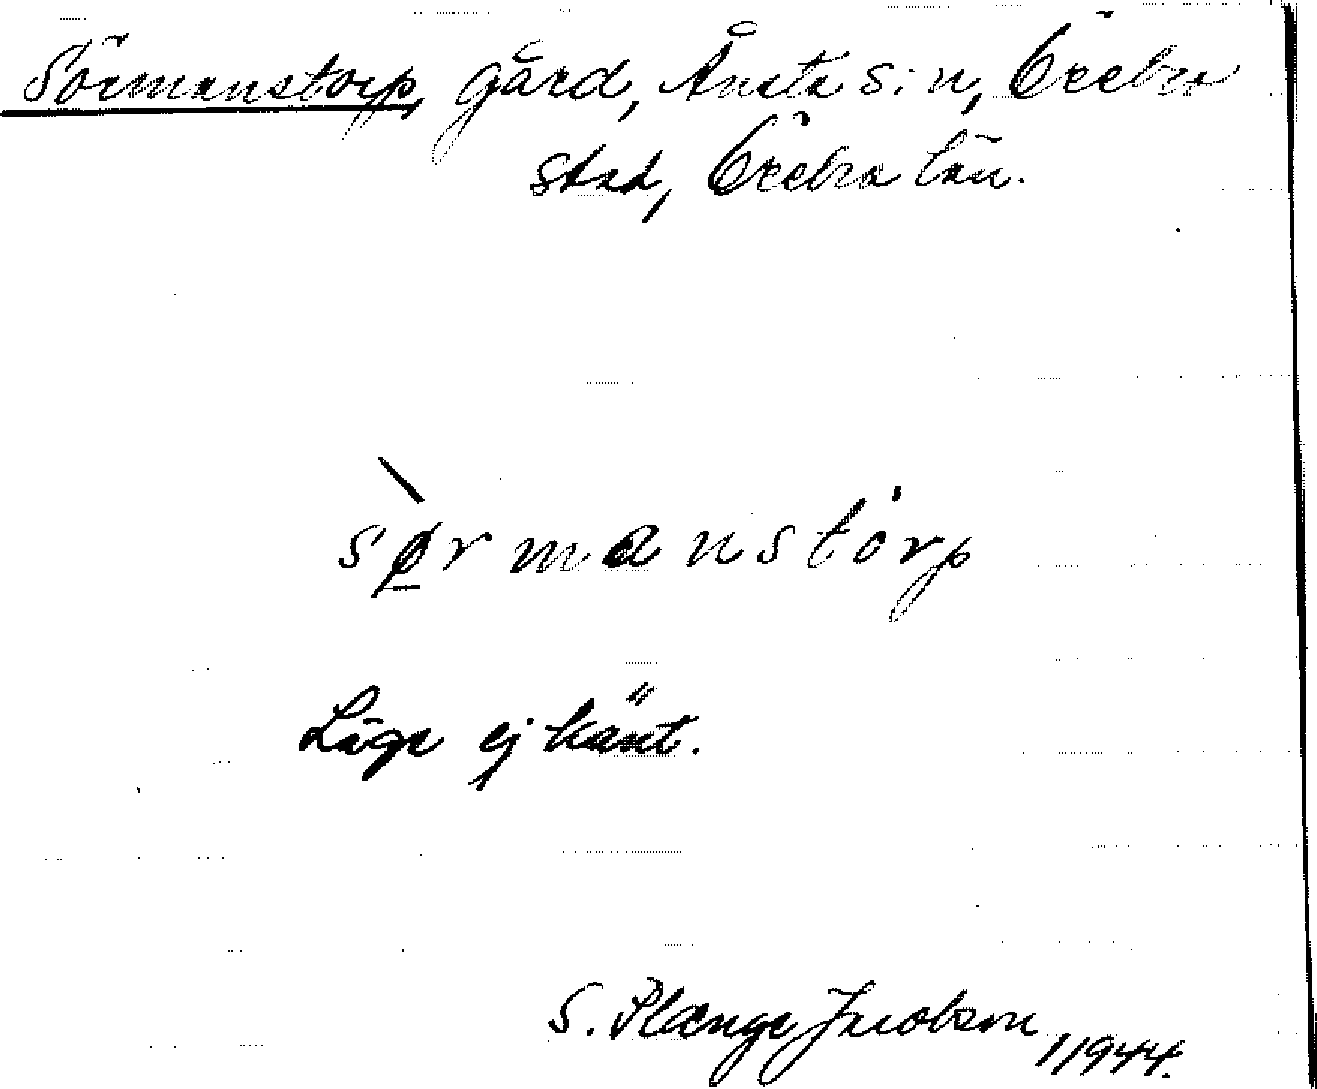 Sörmanstorp, gård, Ånsta s:n, Örebro
stad, Örebro län.
sø̱̀rmanstórp
Läge ej känt.
S. Plænge Jacobson
1944.